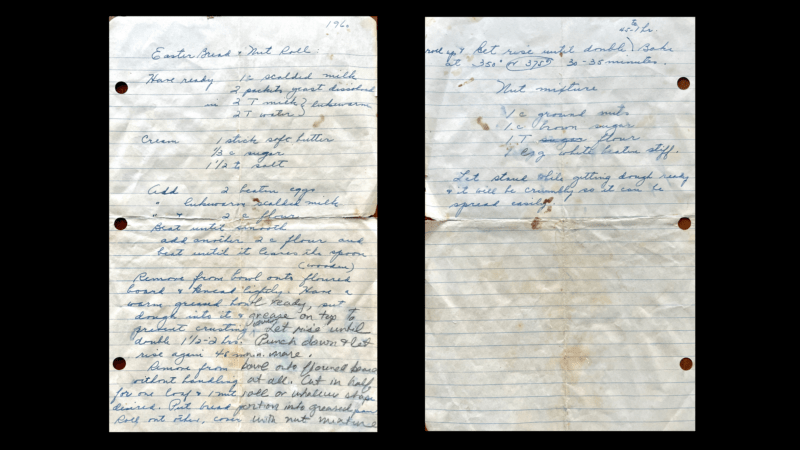 196
Easter Bread & Nut Roll
Have ready 1 c scalded milk
2 packets yeast dissolved
in 2 T milk } lukewarm
2 T water
Cream 1 stick soft butter
1/3 c sugar
1 1/2 t salt
Add 2 beaten eggs
" lukewarm scalded milk
" & 2 c flour
Beat until smooth
add another 2 c flour and
beat until it leaves the spoon
(wooden)
Remove from bowl onto floured
board & knead lightly. Have a
warm greased bowl ready, put
dough into it & grease on top to
prevent crusting. Let rise until
double 1 1/2-2 hrs. Punch down & let
rise again 45 min. more.
Remove from bowl onto floured board
without handling at all. Cut in half
for one loaf & 1 nut roll or whatever shape
desired. Put bread portion into greased pan
Roll out other, cover with nut mixture
45-1 hr.
roll up & let rise until double) Bake
at 350° or 375° 30-35 minutes.
Nut mixture
1 c ground nuts
1 c brown sugar
1 T sugar flour
1 egg white beaten stiff.
Let stand while getting dough ready
& it will be crumbly so it can be
spread easily